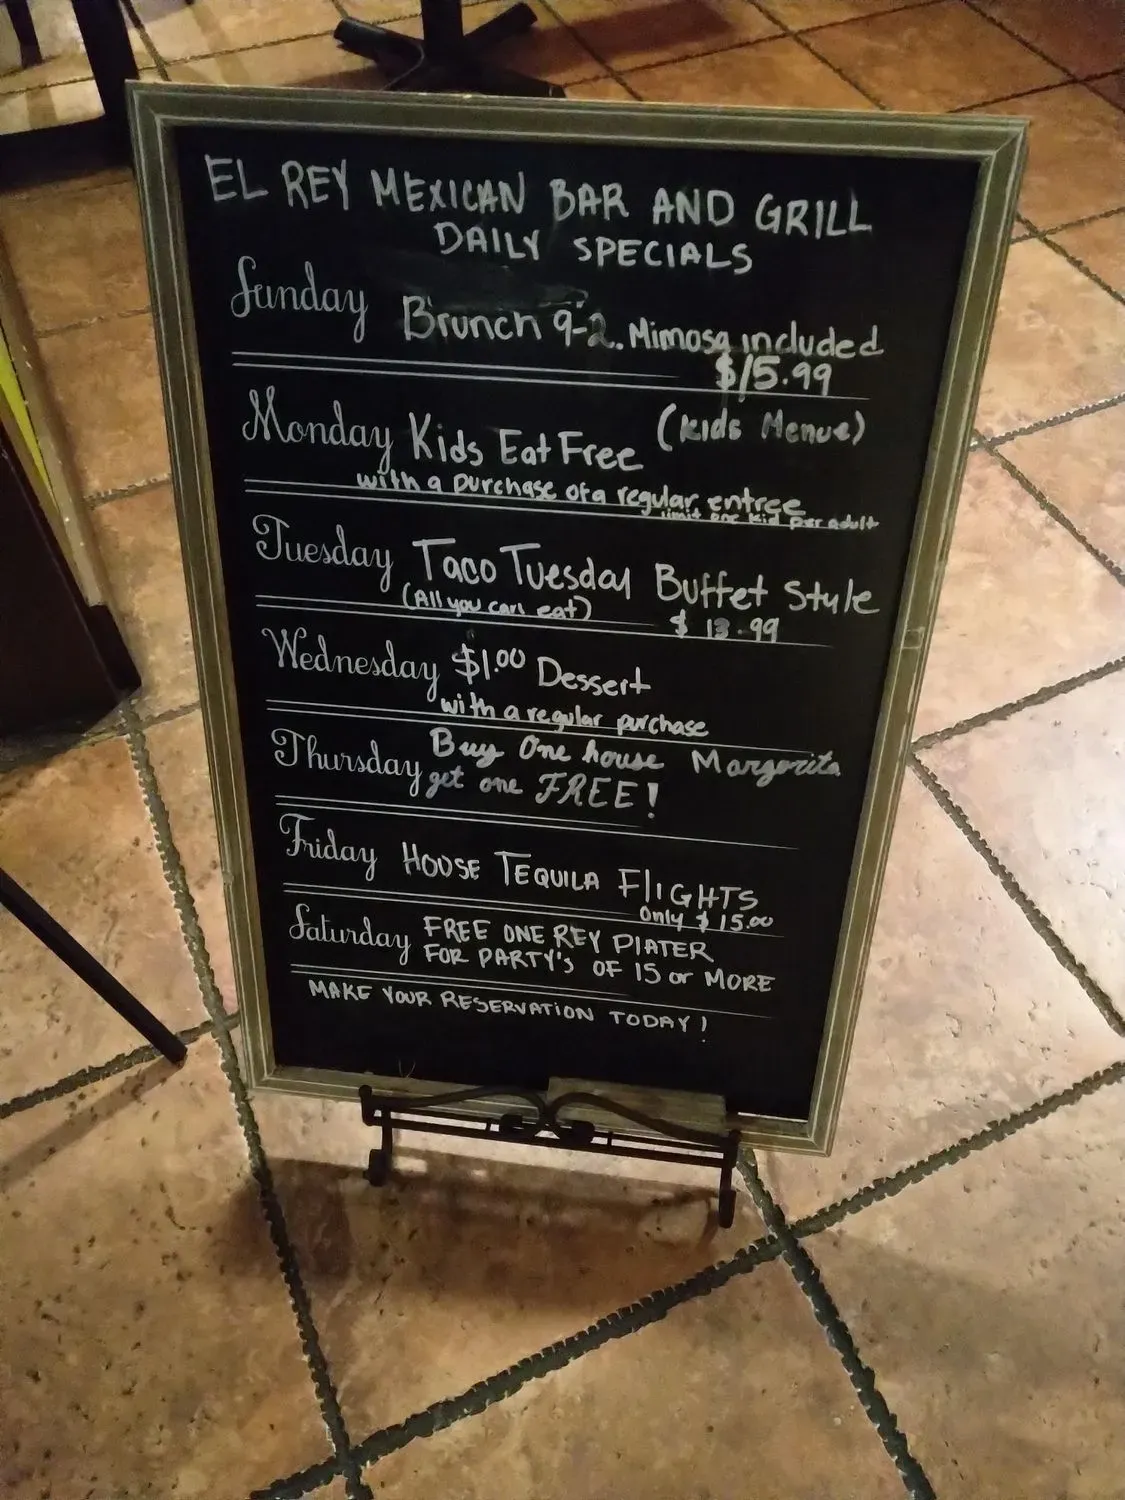 EL REY MEXICAN BAR AND GRILL
DAILY SPECIALS
Sunday Brunch 9-2. Mimosa included
$15.99
Monday Kids Eat Free (Kids Menue)
with a purchase of a regular entree
limit one kid per adult
Tuesday Taco Tuesday Buffet Style
(All you can eat) $13.99
Wednesday $1.00 Dessert
with a regular purchase
Thursday Buy One house Margarita
get one FREE!
Friday HOUSE TEQUILA FLIGHTS
Only $15.00
Saturday FREE ONE REY PLATER
FOR PARTY'S OF 15 or MORE
MAKE YOUR RESERVATION TODAY!